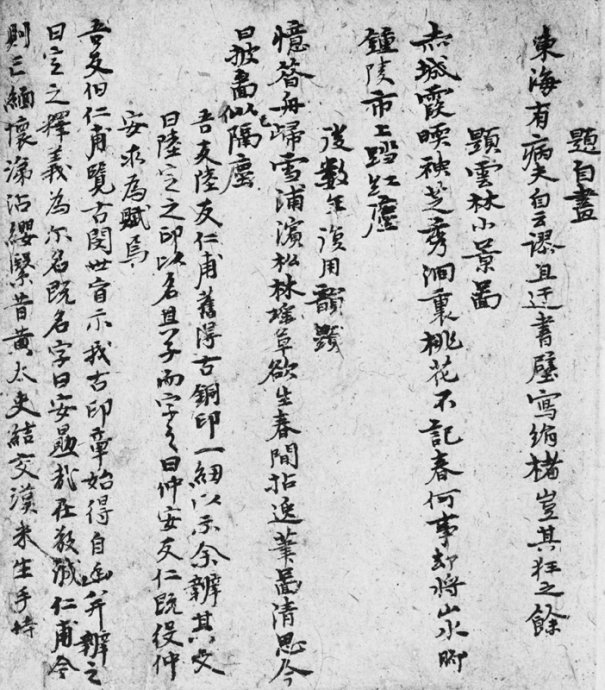 題自畫
東海有病夫自云謬且迂書壁寫絹楮豈其狂之餘
題雲林小景啚
赤城霞暎秧芝秀澗裏桃花不記春何事却將山水脚
鍾陵市上踏紅塵
後數年復用韻題
憶昔舟歸雪浦濱松林瑤草欲生春閒拈逸筆啚清思今
日披啚似隔塵
吾友陸友仁甫舊得古銅印一紐以示余辨其文
曰陸定之印以名其子而字之曰仲安友仁既歿仲
安求為賦焉
吾友伯仁甫覽古閔世盲示我古印章始得自幽并辨之
曰定之釋義為尔名既名字曰安勗哉在敬誠仁甫今
則亡緬懷涕沾纓緊昔黃太史結交漢米生手持